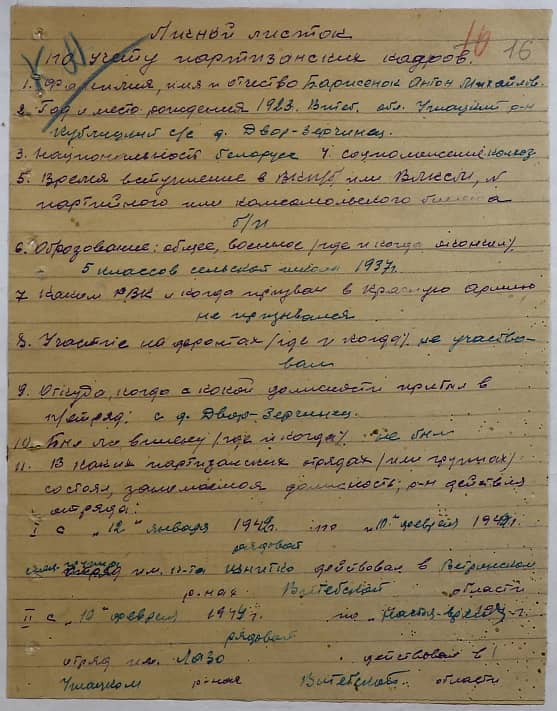 Личной листок
по учету партизанских кадров.
16 16
1. Фамилия, имя и отчество Барисенок Антон Михайлов.
2. Год и место рождения 1923. Витеб. обл. Ушацкий р-н
Кублицкий с/с д. Двор-Зерчинец.
3. Национальность белорусс 4. соцположение колхоз
5. Время вступление в ВКП/б/ или ВЛКСМ, №
партийного или комсомольского билета
б/п
6. Образование: общее, военное /где и когда окончил/
5 классов сельской школы 1937г.
7. Каким РВК и когда призван в Красную Армию
не призывался
8. Участие на фронтах /где и когда/ не участво-
вал
9. Откуда, когда с какой должности прибыл в
п/отряд: с д. Двор-Зерчинец.
10. Был ли в плену /где и когда/ не был
11. В каких партизанских отрядах /или группах/
состоял, занимаемая должность; р-н действия
отряда:
I с "12" января 194 г. по "10" февраля 194 г.
рядовой
отряд им. действовал в Ветринском
р-нах Витебской области
II с "10" февраля 194 г. по настоя-время г.
рядовой
отряд им. Лазо действовал в
Ушацком р-нах Витебской области